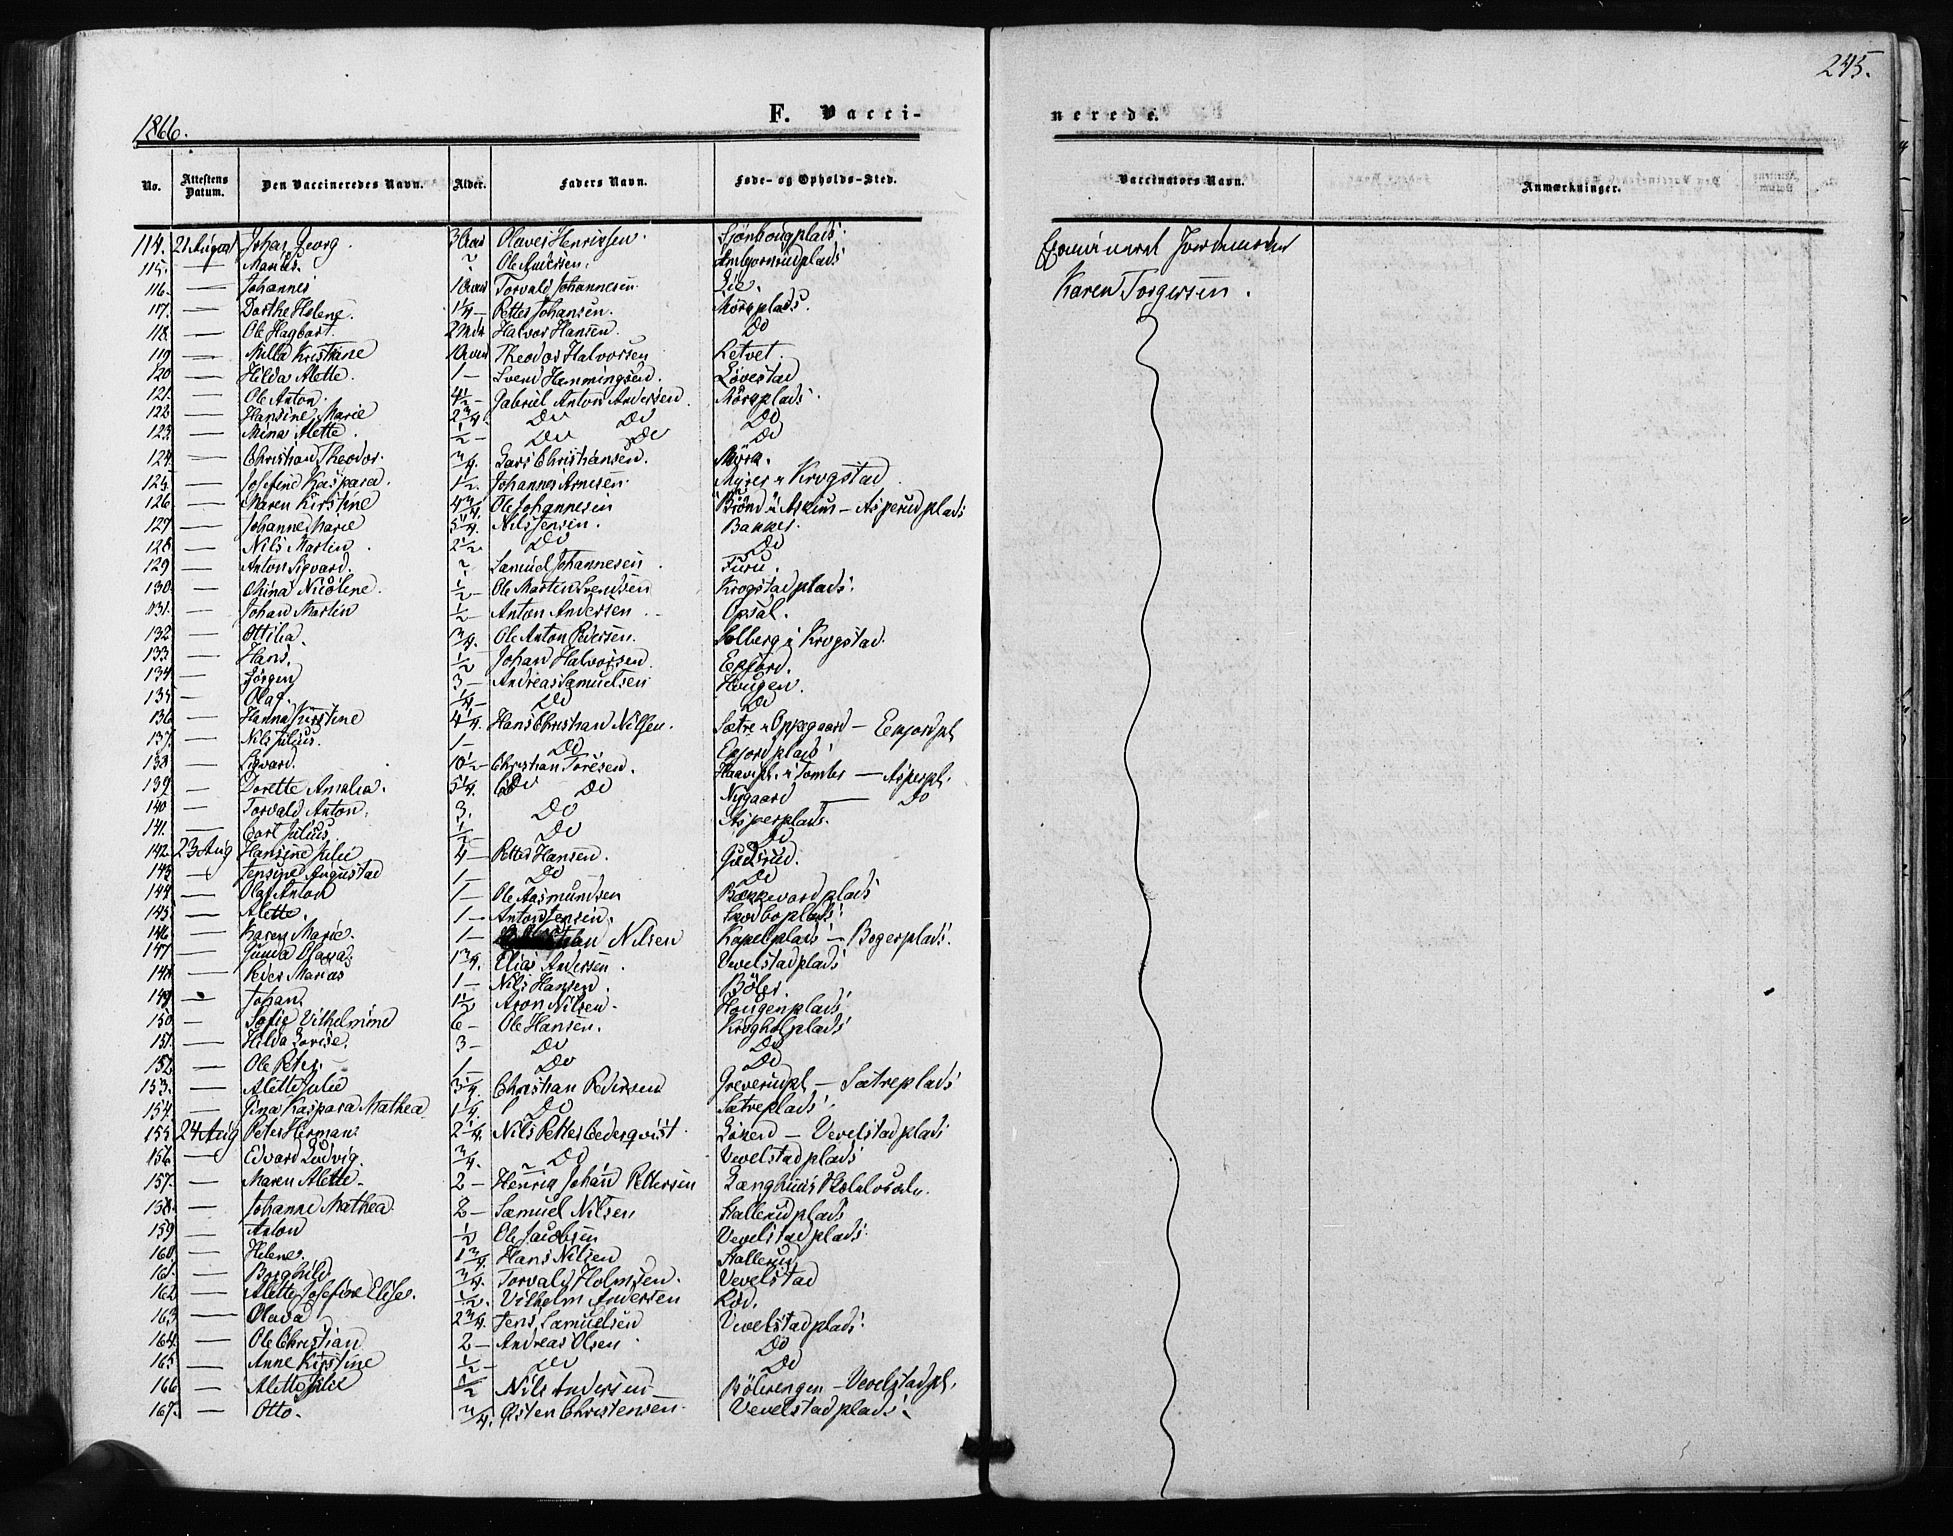 245.
1866.
F. Vacci-
nerede.
No. Attestens Datum. Den Vaccineredes Navn. Alder. Faders Navn. Føde- og Opholds-Sted.
Vaccinators Navn. Anmærkninger.
114. 21 August Johan Georg. Olaves Henriksen.
115. — Marius. Ole Andersen.
116. — Johannes Torvald Johannesen Lie.
117. — Dorthe Helene. 1 1/4 — Petter Johansen.
118. — Ole Hagbart. Halvor Hansen. Do
119. — Milla Kristine Theodor Halvorsen Letvet.
120 — Hilda Alette. 1 — Svend Hemmingsen. Løvestad
121. — Ole Anton. 4 1/2 — Gabriel Anton Andersen.
122 — Hansine Marie 2 3/4. Do Do Do
123. — Mina Alette. 1/2 — Do Do Do
124. — Christian Theodor. 3/4. Lars Christiansen. Myra.
125. — Josefine Kaspara. 1 1/2. Johannes Arnesen. Myrer i Krogstad.
126. — Maren Kirstine 4 3/4. Ole Johannesen Brønd i Askim — Asperud plads
127. — Johanne Marie 5 1/4. Nils Jensen. Bakker.
128. — Nils Martin. 2 1/2 Do Do
129 — Anton Sigvard. Samuel Johannesen. Furu.
130. — Mina Nicoline. 1/2 — Ole Martin Svendsen Krogstad plads.
131. — Johan Martin 1/2 — Anton Andersen. Opsal.
132. — Ottilia. 3/4. Ole Anton Pedersen. Solberg i Krogstad.
133. — Hans. 1/2 Johan Halvorsen. Epjord.
134. — Jørgen 3 — Andreas Samuelsen Haugen.
135 — Olaf. 1/4 — Do Do
136 — Hanna Kirstine 4 1/4. Hans Christian Nilsen. Sætre i Oppegaard — Epjord pl
137. — Nils Julius. 1 — Do Epjord plads
138. — Sigvard. 10 1/2 — Christian Toresen. i Tomter — Asperpl.
139. — Dorette Amalia. 5 1/4. Do Do Nygaard — Do
140 — Torvald Anton. 3. Do Asperplads.
141. — Carl Julius. 1/2 — Do Do
142. 23 Aug Hansine Julie 4 — Petter Hansen. Gudsrud.
143. — Jensine Augustad 1 — Do Do
144 — Olaf Anton 1 — Ole Aasmundsen Bækkevard plads
145. — Alette. 1 — Anton Jensen. Skodbo plads.
146 — Karen Marie. 1 — Nilsen Kapelplads — Bogerplads.
147 — Gunda Olava. 1 3/4. Elias Andersen. Vevelstadplads
148 — Peder Marius 1 — Nils Hansen. Böler.
149. — Johan. 1 1/2 Aron Nilsen. Haugenplads.
150. — Sofie Vilhelmine 6 — Ole Hansen. Krogholplads
151. — Hilda Lovise. 3 — Do Do
152 — Ole Peter. 1 — Do Do
153. — Alette Julie 3 1/4. Christian Pedersen Greverudpl — Sætreplads
154. — Gina Kaspara Mathea 1 1/4. Do Sætreplads.
155 24 Aug Peter Herman. 2 1/4. Nils Petter Cederqvist. Løken — Vevelstadplads
156 — Edvard Ludvig. 3/4. Do Vevelstadplads
157. — Maren Alette. 2 — Henrig Johan Pettersen
158. — Johanne Mathea. 2 — Samuel Nilsen Hallerud plads
159 — Anton 1/2 Ole Jacobsen Vevelstadplads.
160 — Helene. 1 3/4. Hans Nilsen Hallerud
161. — Borghild 3/4. Torvald Holmsen. Vevelstad
162 — Alette Josefine Elise. 1/2. Vilhelm Andersen Rod.
163 — Olava 2 3/4. Jens Samuelsen Vevelstadplads.
164. — Ole Christian 2 — Andreas Olsen. Do
165 — Anne Kirstine 1/2 — Do Do
166 — Alette Julie 1/2 Nils Andersen Bölerengen — Vevelstadpl.
167. — Otto. 3/4. Østen Christensen. Vevelstadplads.
Examineret Jordemoder
Karen Torgersen.